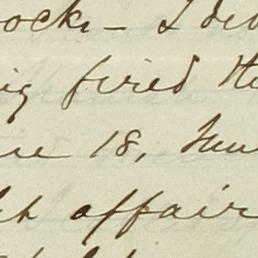 ock – I de
ig fired the
ne 18, Sun
ch affair